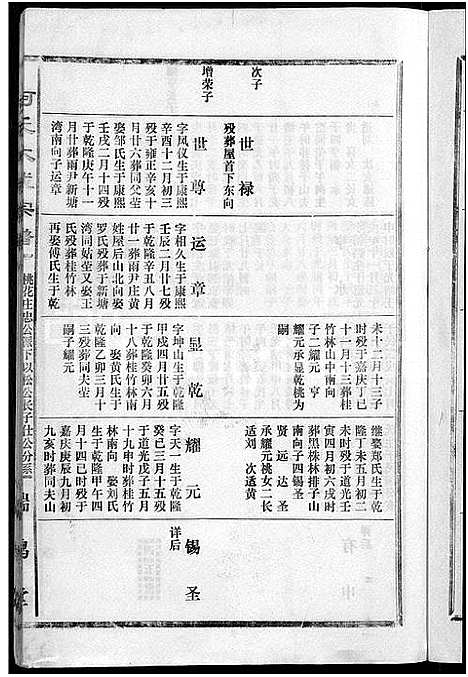 次子
世禄
殁葬屋首下东向
增荣子
世尊
字凤仪生于康熙
辛酉十二月初三
殁于雍正辛亥十
月廿六葬同父茔
娶邹氏生于康熙
壬戌二月十四殁
于乾隆庚午十一
月廿葬雨尹新塘
湾南向子运章
运章
字相久生于康熙
壬辰二月廿七殁
于乾隆辛丑八月
廿一葬雨尹庄黄
姓屋后山北向娶
罗氏殁葬于新塘
湾同姑茔又娶王
氏殁葬桂竹林
再娶傅氏生于乾
未十二月十三子
时殁于嘉庆丁巳
十一月十三葬桂
竹林山中南向
子二耀元 亨
耀元承显乾桃为
嗣
显乾
字坤山生于乾隆
甲戌四月廿五殁
于乾隆癸卯六月
十八葬桂竹林南
向 娶黄氏生于
乾隆乙卯三月十
三殁葬同夫茔
嗣子耀元
继娶郑氏生于乾
隆丁未五月初二
未时殁于道光壬
寅四月初六戌时
葬黑株林排子山
南向子四锡圣
贤 远 达 圣
承耀元桃女二长
适刘 次适黄
耀元
字天一生于乾隆
癸巳三月十五殁
于道光戊子五月
十九申时葬桂竹
林南向 娶刘氏
生于乾隆甲午四
月十四巳时殁于
嘉庆庚辰九月初
九亥时葬同夫山
锡圣
详后
桃花庄忠公派下以松公长子仕公分系